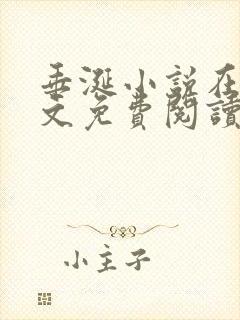 垂涎小説在
文免費閱讀
小主子